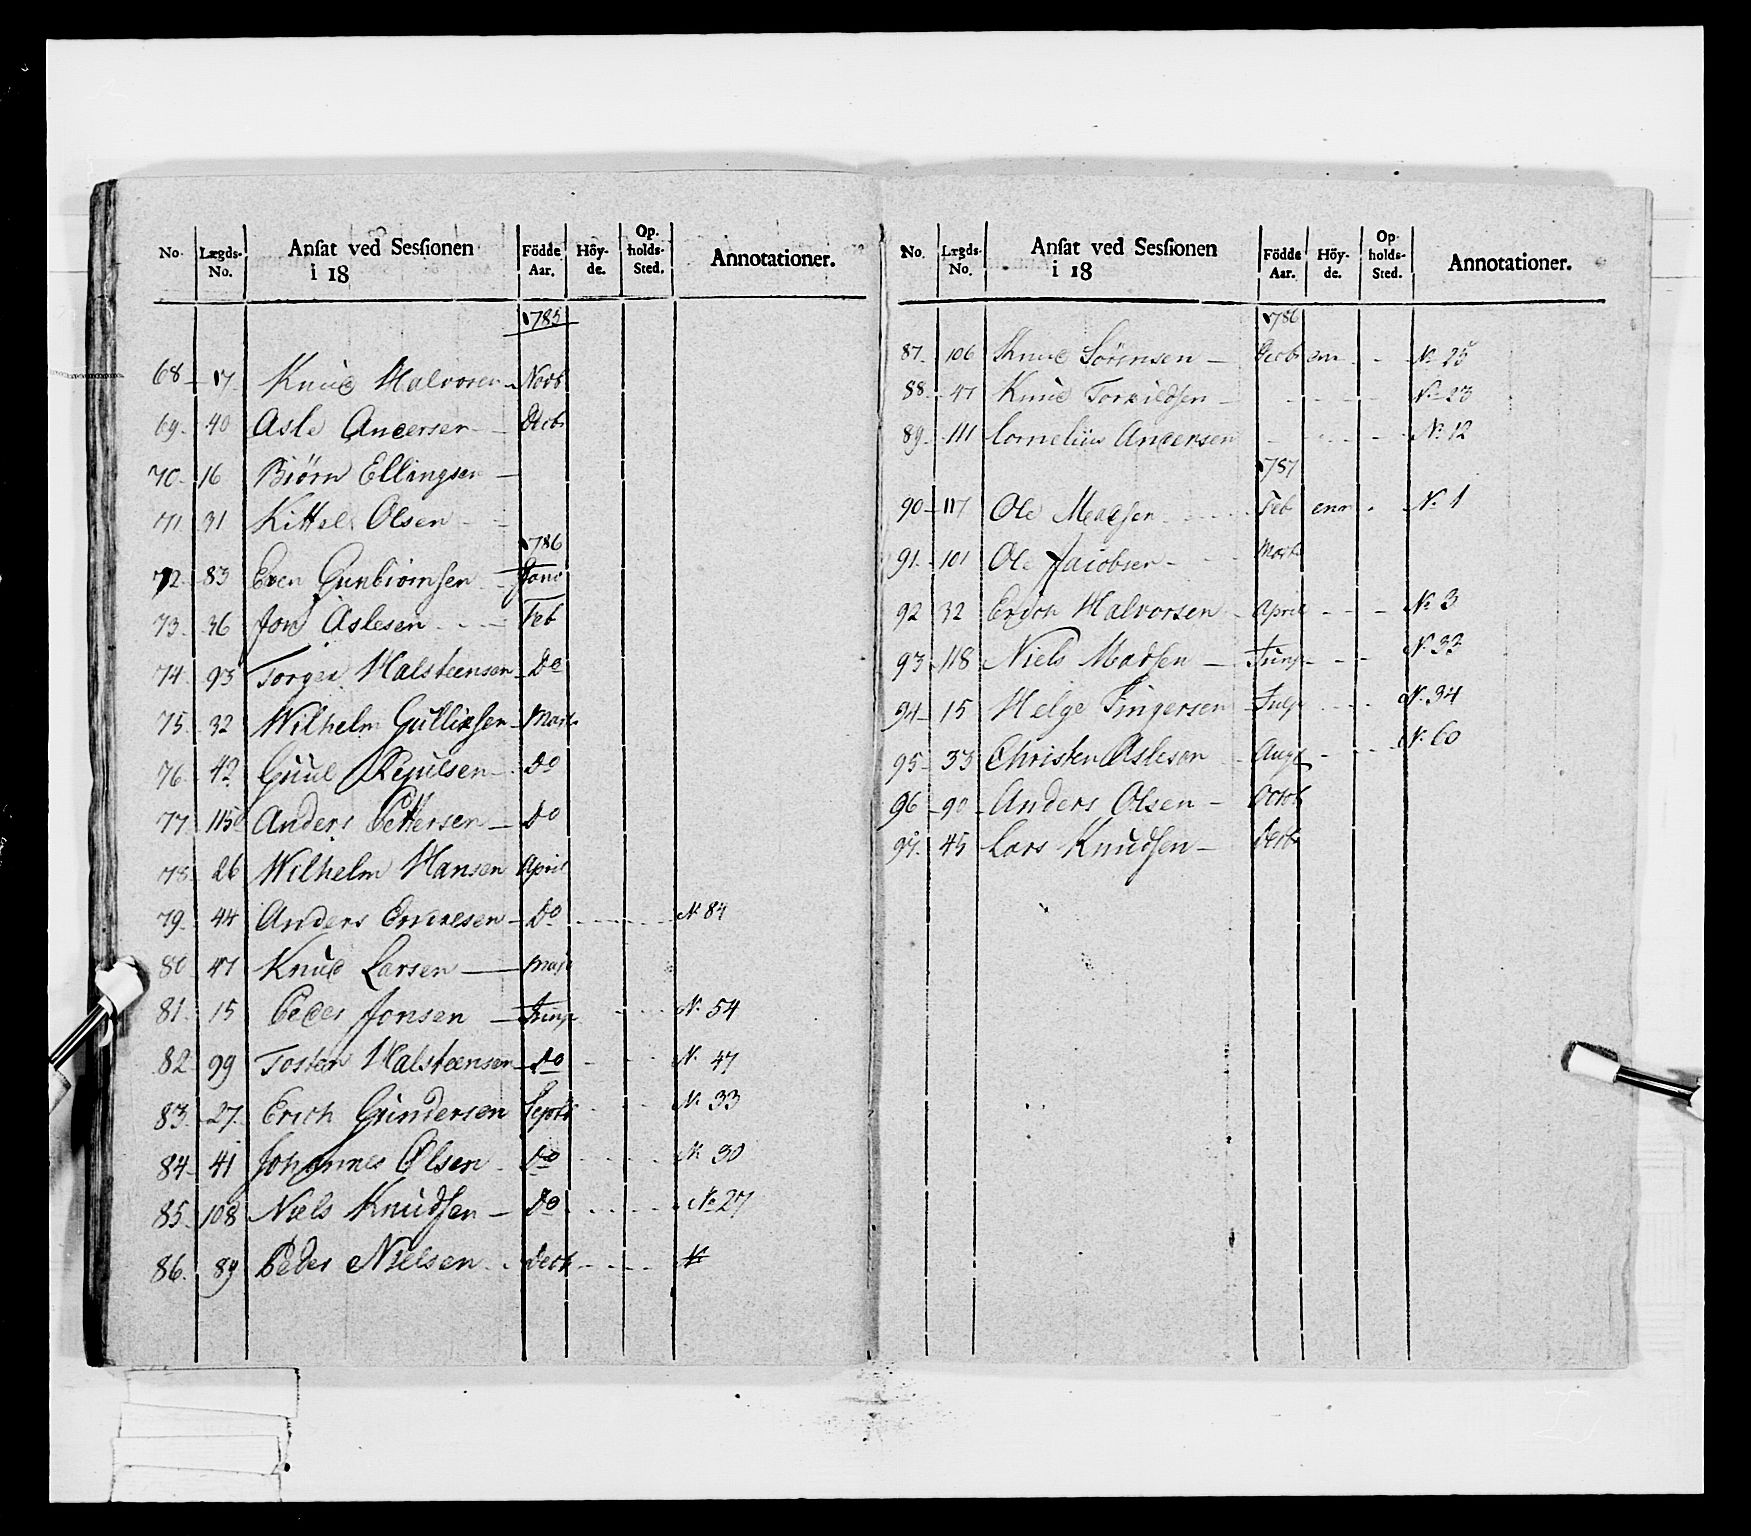 No. Lægds-No. Ansat ved Sessionen i 18 Födde Aar. Höy-de. Op-holds-Sted. Annotationer.
1785
68 - 17. Knud Halvorsen - Novb
69. 40 Asle Andersen - Decbr
70. 16 Biörn Ellingsen -
71 31 Kittel Olsen - -
1786
72. - 83 Even Gunbiörnsen - Janv
73. 36 Jon Aslesen - - - Feb
74. 93 Torger Halsteensen - Do
75. 32 Wilhelm Gulliksen - Marts
76. 42 Guul - Do
77 115 Anders Pettersen - Do
78 26 Wilhelm Hansen April
79. 44 Anders - Do - - - - N 84
80 47 Knud Larsen - Maji
81. 15 Peder Jonsen - Junij - - - N. 54
82 99 Tosten Halsteensen - Do - - - N. 47
83. 27. Erich Gundersen Septb - - - N. 33
84 - 41 Johannes Olsen - Do - - - - N 30
85. 108 Niels Knudsen - Do - - - - No 27
86. 89 Peder Nielsen - - Decb - - - - N
No. Lægds-No. Ansat ved Sessionen i 18 Födde Aar. Höy-de. Op-holds-Sted. Annotationer.
1786
87. 106 Knud Sörensen - Decbr - - No 25
88. - 47 Knud Torkildsen - - - - - No 23
89. 111 Cornelius Andersen - - - - No 12
1787
90 - 117 Ole Madsen - - - Feb - No 1
91. - 101 Ole Jacobsen - - Marts
92 32 Erich Halvorsen - April - - - No 3
93 - 118 Niels Madsen - Junij - - - No 33
94 - 15 Helge - Julij - - - No 34
95 - 33 Christen Aslesen - Augt - - - - No 60
96 - 90 - Anders Olsen - Octob
97. 45 Lars Knudsen - Decbr